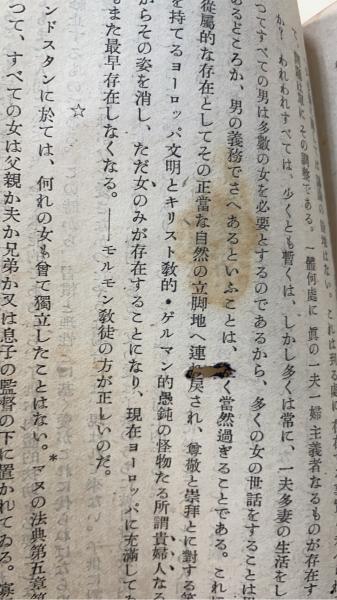 問題は單にその調整である。一體何處に眞の一夫一婦主義者なるものが存在す
か? われわれすべては、少くとも暫くは、しかし多くは常に、一夫多妻の生活をし
つてすべての男は多數の女を必要とするのであるから、多くの女の世話をすることは
あるところか、男の義務でさへあるといふことは、く當然過ぎることである。これ
從屬的な存在としてその正當な自然の立脚地へ連戾され、尊敬と崇拜とに對する
を持てるヨーロッパ文明とキリスト敎的・ゲルマン的愚鈍の怪物たる所謂貴婦人なる
からその姿を消し、ただ女のみが存在することになり、現在ヨーロッパに充滿して
もまた最早存在しなくなる。――モルモン敎徒の方が正しいのだ。
☆
ンドスタンに於ては、何れの女も曾て獨立したことはない。*マヌの法典第五章第
つて、すべての女は父親か夫か兄弟か又は息子の監督の下に置かれてゐる。寡